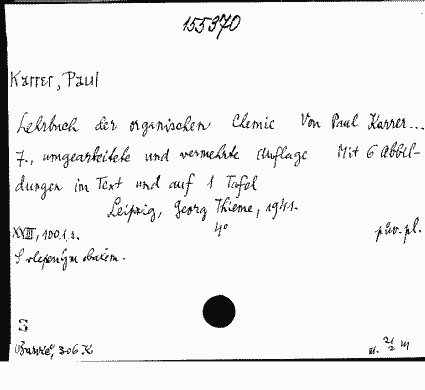 155370
Karrer, Paul
Lehrbuch der organischen Chemie Von Paul Karrer...
7., umgearbeitete und vermehrte Auflage Mit 6 Abbil-
dungen im Text und auf 1 Tafel
Leipzig, Georg Thieme, 1941.
XXIII, 1001 s. 4° pův. pl.
S vlepeným obalem.
306 K